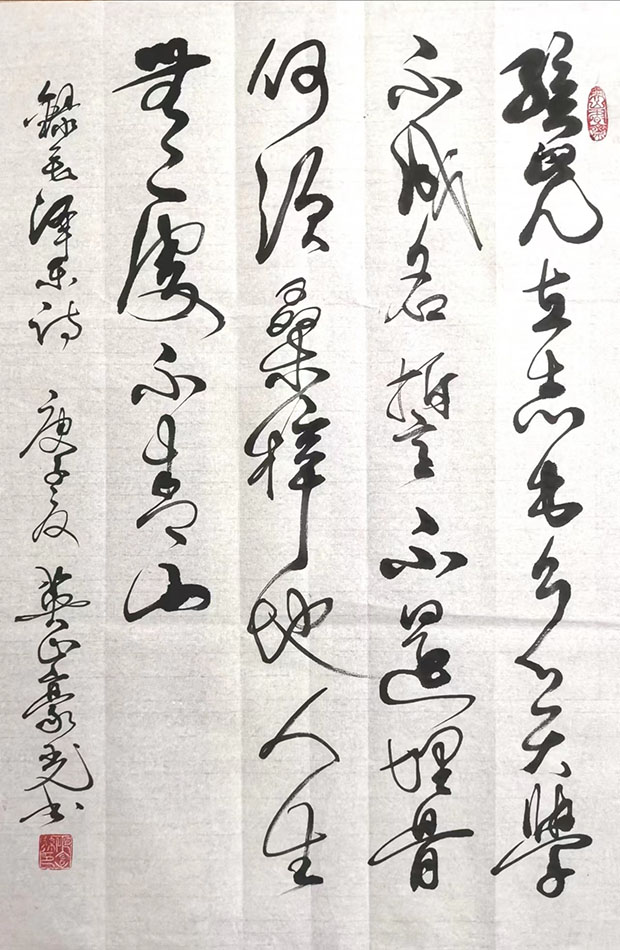 孩兒立志出乡关學
不成名誓不還埋骨
何须桑梓地人生
無處不青山
録毛泽东诗 庚子夏 英山豪书